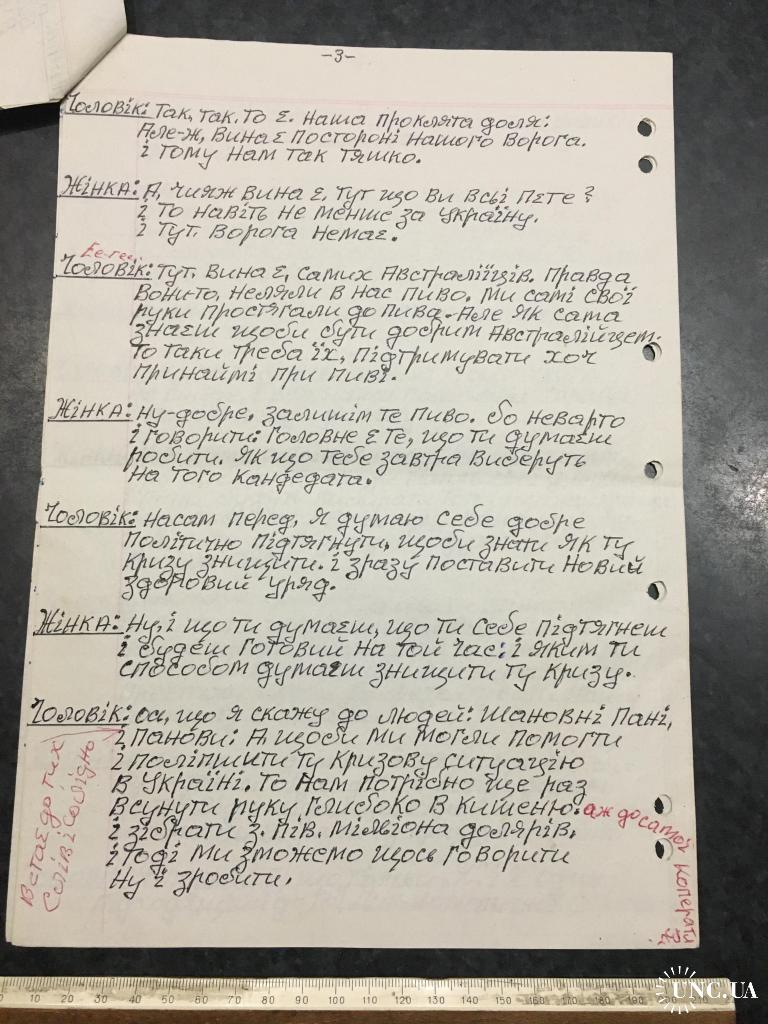 -3-
Чоловік: Так, так. то є. наша проклята доля:
Але-ж, вина є постороні нашого ворога.
і тому нам так тяшко.
Жінка: А, чияж вина є, тут що ви всьі пєте?
і то навіть не менше за Україну.
і тут. ворога немає.
Ее-гее..
Чоловік: Тут. вина є, самих Австраліїців. Правда
вони-то, неляли в нас пиво. Ми самі свої
руки простягали до пива. Але як сама
знаєш щоби бути добрим Австралійцем.
то таки треба їх, підтримувати хоч
принаймі при пиві.
Жінка: Ну-добре. залишім те пиво. бо неварто
і говорити: головне є те, що ти думаєш
робити. Як що тебе завтра виберуть
на того кандедата.
Чоловік: Насам перед, я думаю себе добре
політично підтягнути, щоби знати як ту
кризу знищити. і зразу поставити новий
здоровий уряд.
Жінка: Ну, і що ти думаєш, що ти себе підтягнеш
і будеш готовий на той час: і яким ти
способом думаєш знищити ту кризу.
Чоловік: Ось, що я скажу до людей: Шановні Пані,
і Панови: А, щоби ми могли помогти
і посліпшити ту кризову ситуацію
в Україні. то нам потрібно ще раз
всунути руку, глибоко в кишеню. аж до самої коперати
і зібрати з. пів. міліона долярів.
і тоді ми зможемо щось говорити
ну і зробити.
Встає до тих
Слів і Солідно
0 10 20 30 40 50 60 70 80 90 100 110 120 130 140 150 160 170 180 190
UNC.UA